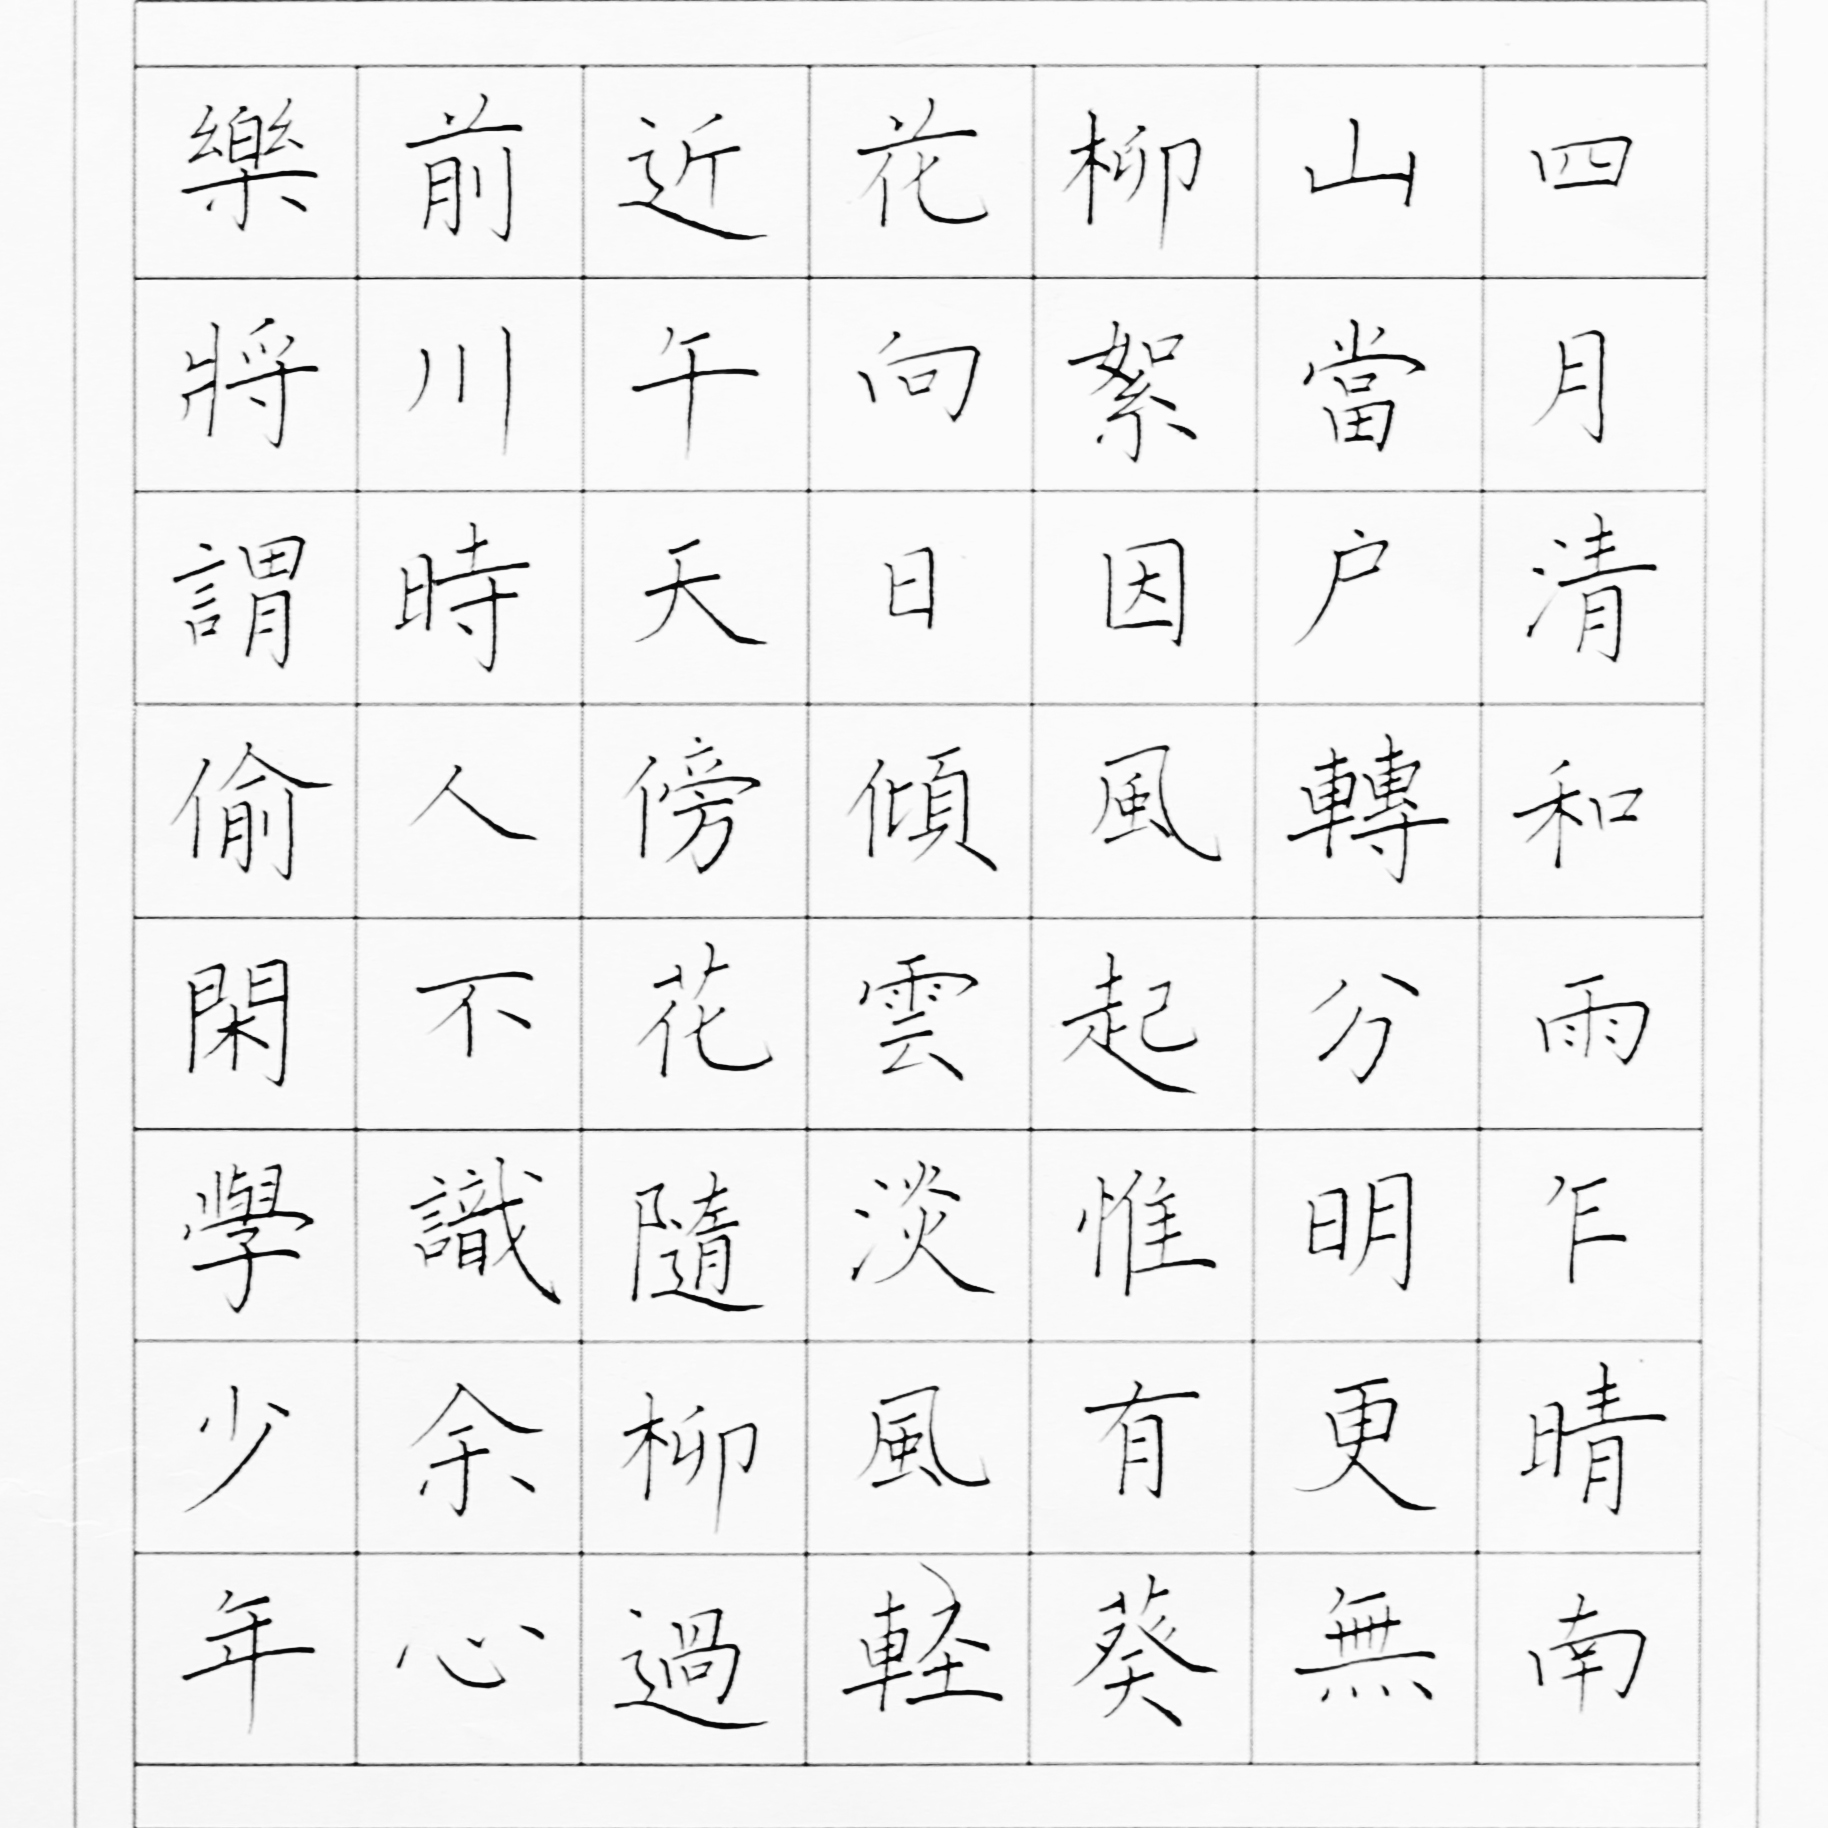 四月清和雨乍晴南
山當户轉分明更無
柳絮因風起惟有葵
花向日傾雲淡風軽
近午天傍花隨柳過
前川時人不識余心
樂將謂偷閑學少年